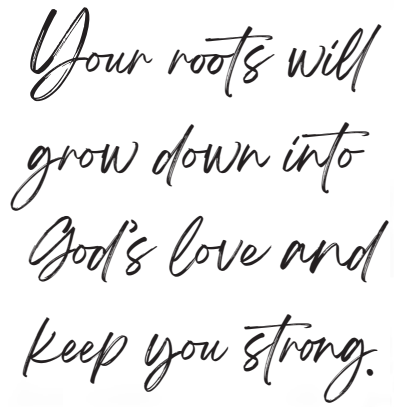 Your roots will
grow down into
God's love and
keep you strong.